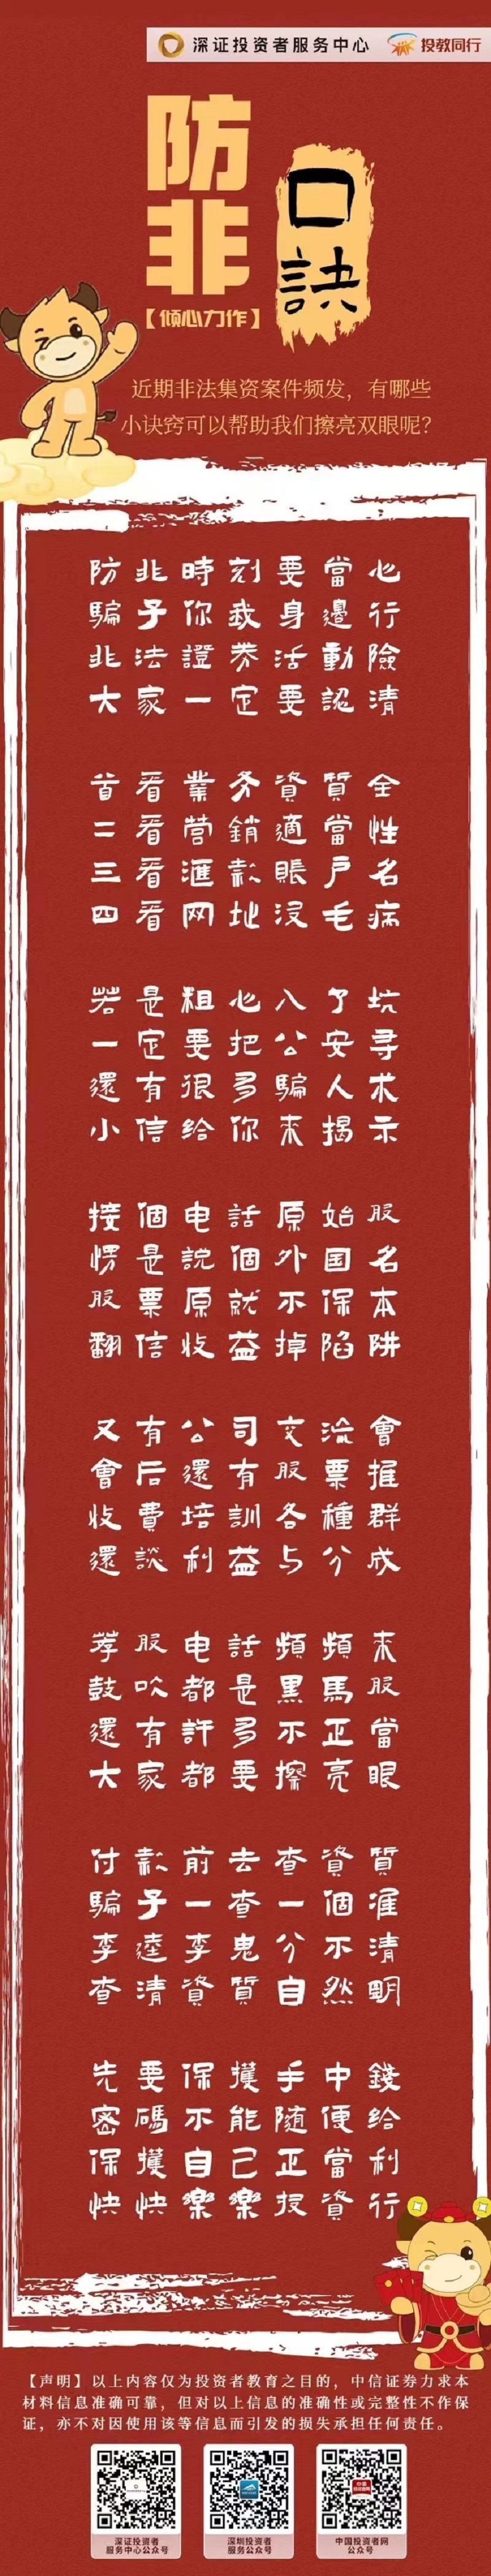 深证投资者服务中心 投教同行
防非
口訣
【倾心力作】
近期非法集资案件频发，有哪些
小诀窍可以帮助我们擦亮双眼呢？
防非時刻要當心
騙子你我身邊行
非法證券活動險
大家一定要認清
首看業务資質全
二看營銷適當性
三看匯款賬户名
四看网址没毛病
若是粗心入了坑
一定要把公安寻
還有很多騙人术
小信给你来揭示
接個电話原始股
愣是說個外国名
股票原就不保本
翻信收益掉陷阱
又有公司交流會
會后還有股票推
收費培訓各種群
還談利益与分成
荐股电話頻頻来
鼓吹都是黑馬股
還有許多不正當
大家都要擦亮眼
付款前去查資質
騙子一查一個准
李逵李鬼分不清
查清資質自然明
先要保護手中錢
密碼不能随便给
保護自己正當利
快快樂樂投資行
【声明】以上内容仅为投资者教育之目的，中信证券力求本
材料信息准确可靠，但对以上信息的准确性或完整性不作保
证，亦不对因使用该等信息而引发的损失承担任何责任。
深证投资者
服务中心公众号
深圳投资者
服务公众号
中国投资者网
公众号